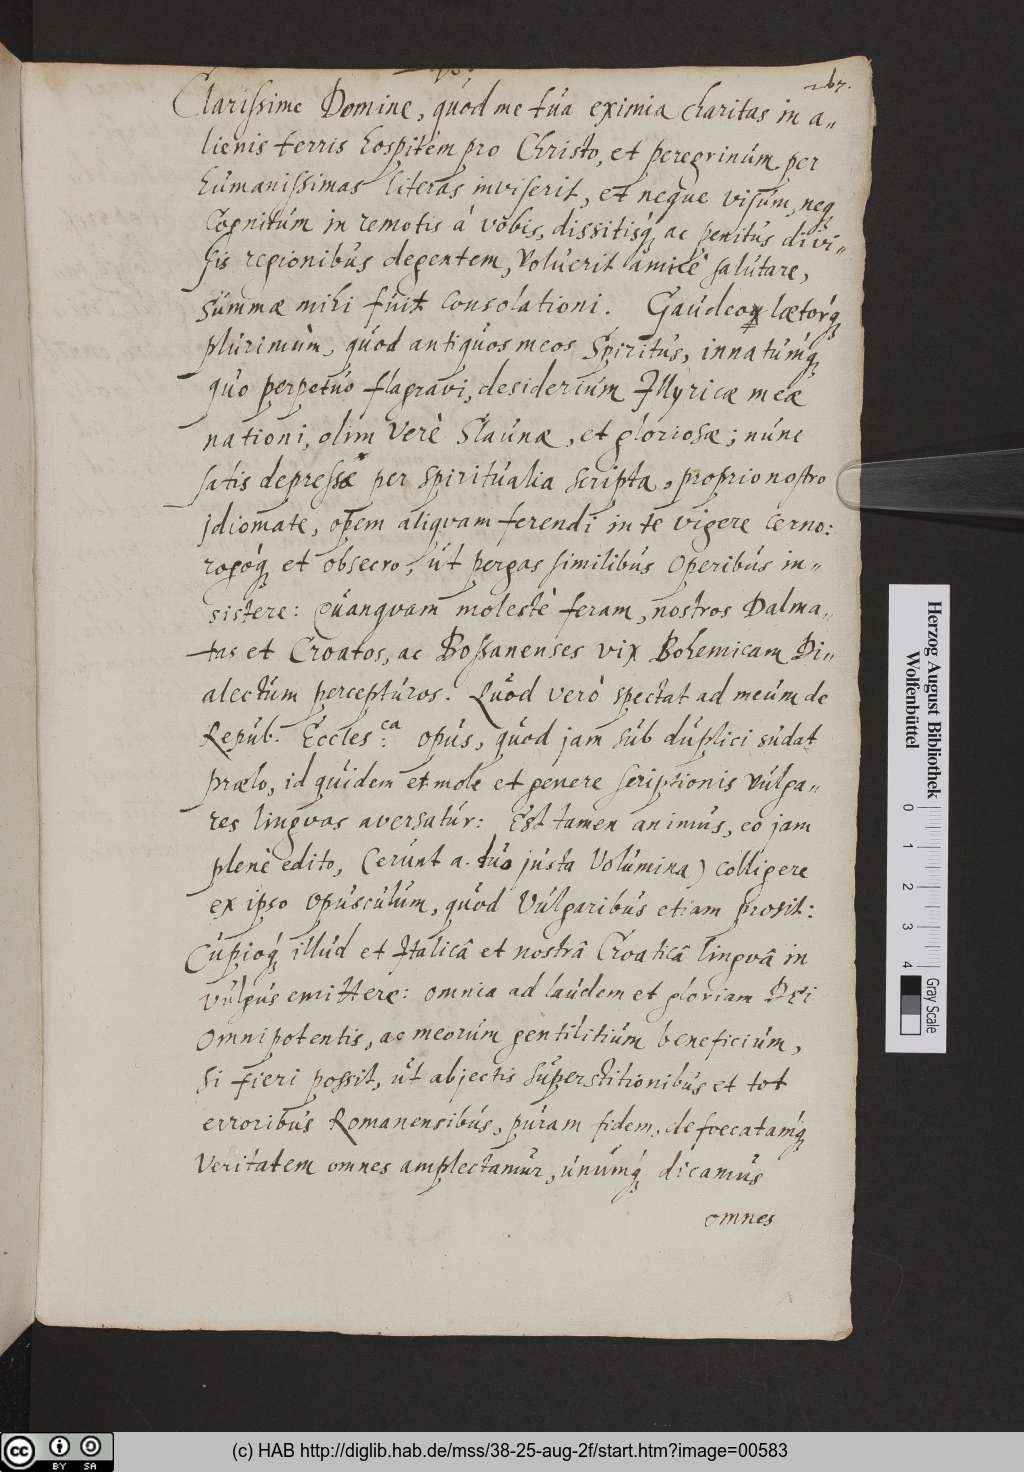 267.
Clarissime Domine, quòd me tua eximia charitas in a„
lienis terris hospitem pro Christo, et peregrinum per
humanissimas literas inviserit, et neque visum, neq꞉
Cognitum in remotis á vobis, dissitisq́꞉ ac penitus divi„
sis regionibus degentem, voluerit amicè salutare,
summæ mihi fuit consolationi. Gaudeo lætorq́꞉
plurimùm, quód antiquos meos Spiritus, innatumq́꞉
quo perpetuo flagravi, desiderium Illyricæ meæ
nationi, olim verè Slavnæ, et gloriosæ; nunc
satis depressæ per spiritualia scripta, proprio nostro
jdiomate, opem aliqvam ferendi in te vigere cerno:
rogoq́꞉ et obsecro, ut pergas similibus operibus in„
sistere: Quanqvam molestè feram, nostros Dalma„
tas et Croatos, ac Bossanenses vix Bohemicam Di„
alectum percepturos. Quod verò spectat ad meum de
Repub. Eccles:ca opus, quod jam sub duplici sudat
prælo, id quidem et mole et genere scriptionis vulga„
res lingvas aversatur: Est tamen animus, eo jam
plenè edito, (erunt a. duo justa Volumina) colligere
ex ipso opusculum, quod Vulgaribus etiam prosit:
Cupioq́꞉ illud et Italicâ et nostrâ Croaticâ lingvâ in
vulgus emittere: omnia ad laudem et gloriam DEi
Omnipotentis, ac meorum gentilitium beneficium,
Si fieri possit, ut abjectis superstitionibus et tot
erroribus Romanensibus, puram fidem, defoecatamq́꞉
Veritatem omnes amplectamur, unumq́꞉ dicamus
omnes
Herzog August Bibliothek
Wolfenbüttel
0 1 2 3 4
Gray Scale
cc BY SA
(c) HAB http://diglib.hab.de/mss/38-25-aug-2f/start.htm?image=00583